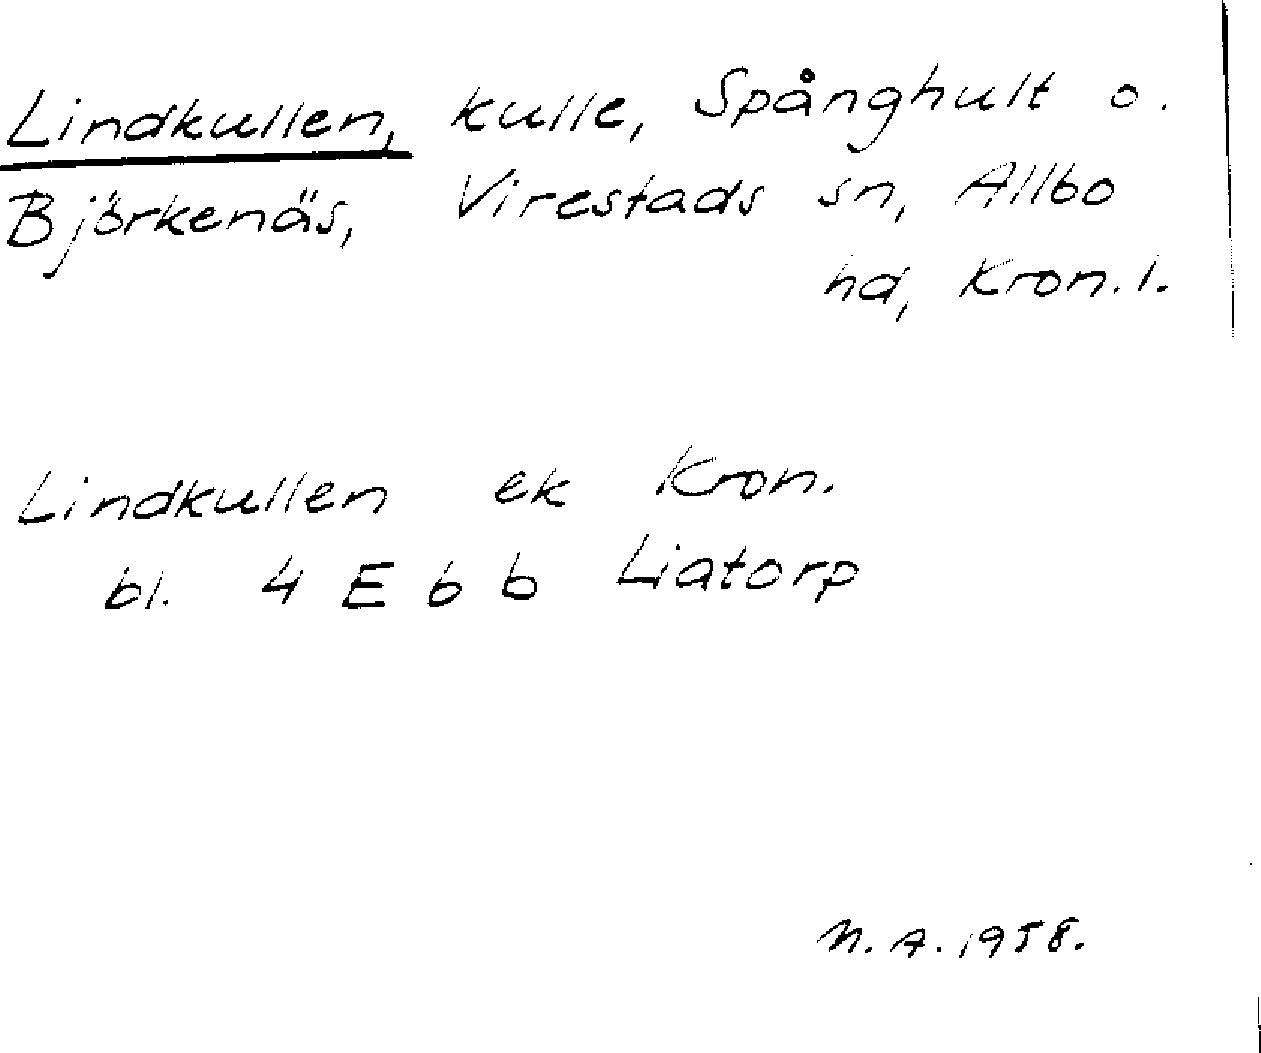 Lindkullen, kulle, Spånghult o.
Björkenäs, Virestads sn, Allbo
hd, Kron. l.
Lindkullen ek Kron.
bl. 4 E 6 b Liatorp
N. A. 1958.